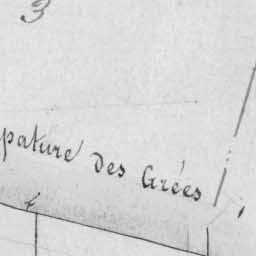 3
pature des Grées